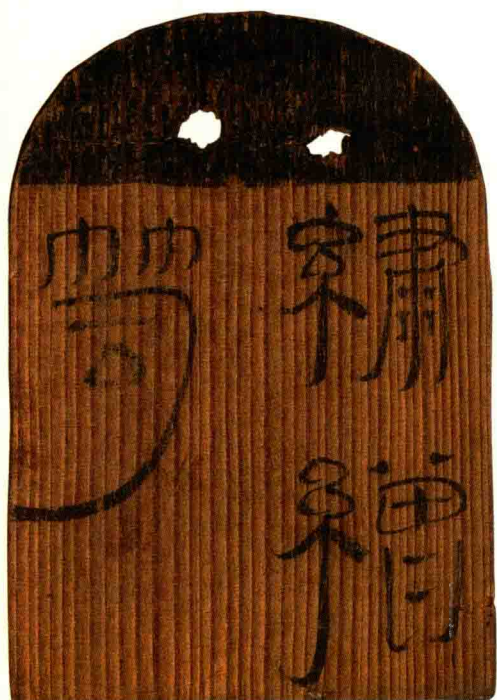 繡繒
笥